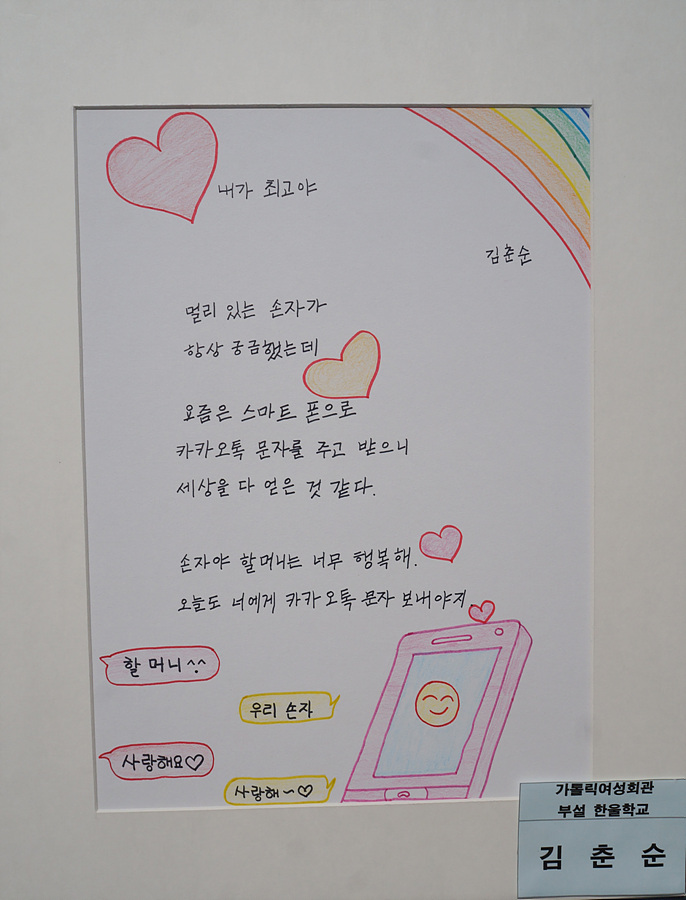 내가 최고야
김춘순
멀리 있는 손자가
항상 궁금했는데
요즘은 스마트 폰으로
카카오톡 문자를 주고 받으니
세상을 다 얻은 것 같다.
손자야 할머니는 너무 행복해.
오늘도 너에게 카카오톡 문자 보내야지
할머니^^
우리 손자
사랑해요♡
사랑해~♡
가톨릭여성회관
부설 한울학교
김 춘 순